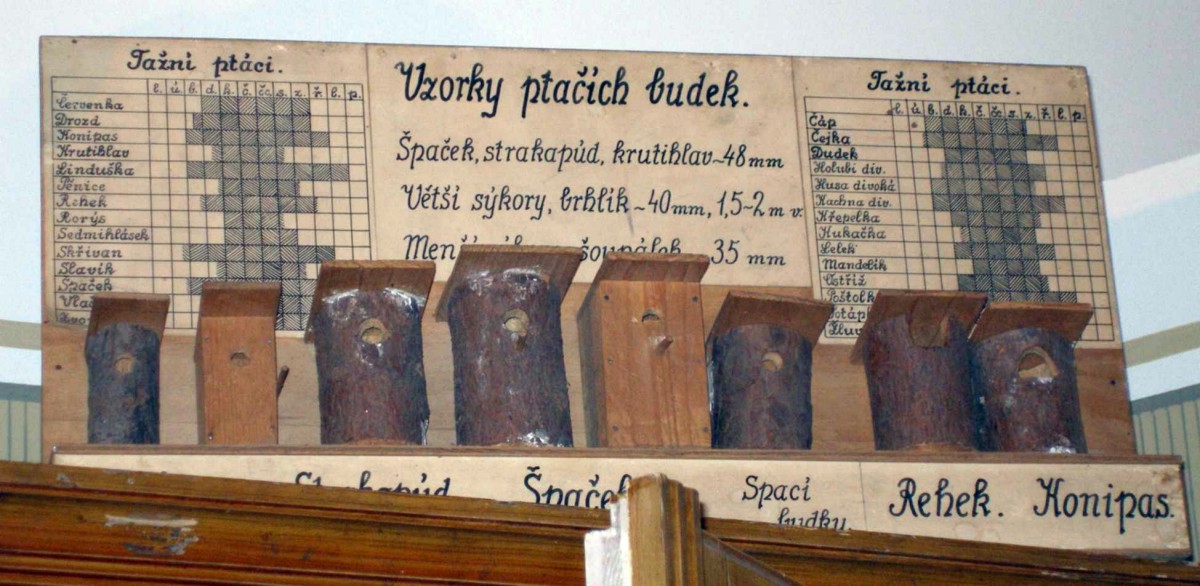 Tažní ptáci.
l. ú. b. d. k. č. čc. s. z. ř. l. p.
Červenka
Drozd
Konipas
Krutihlav
Linduška
Pěnice
Rehek
Rorýs
Sedmihlásek
Skřivan
Slavík
Špaček
Vzorky ptačích budek.
Špaček, strakapúd, krutihlav~48 mm
Větší sýkory, brhlík~40 mm, 1,5-2 m v.
Menší šoupálek 35 mm
Tažní ptáci.
l. ú. b. d. k. č. čc. s. z. ř. l. p.
Čáp
Čejka
Dudek
Holubi div.
Husa divoká
Kachna div.
Křepelka
Kukačka
Lelek
Mandelík
Ostříž
Poštolk
Potáp
Žluv
Strakapúd
Špaček
Spací
budky.
Rehek. Konipas.